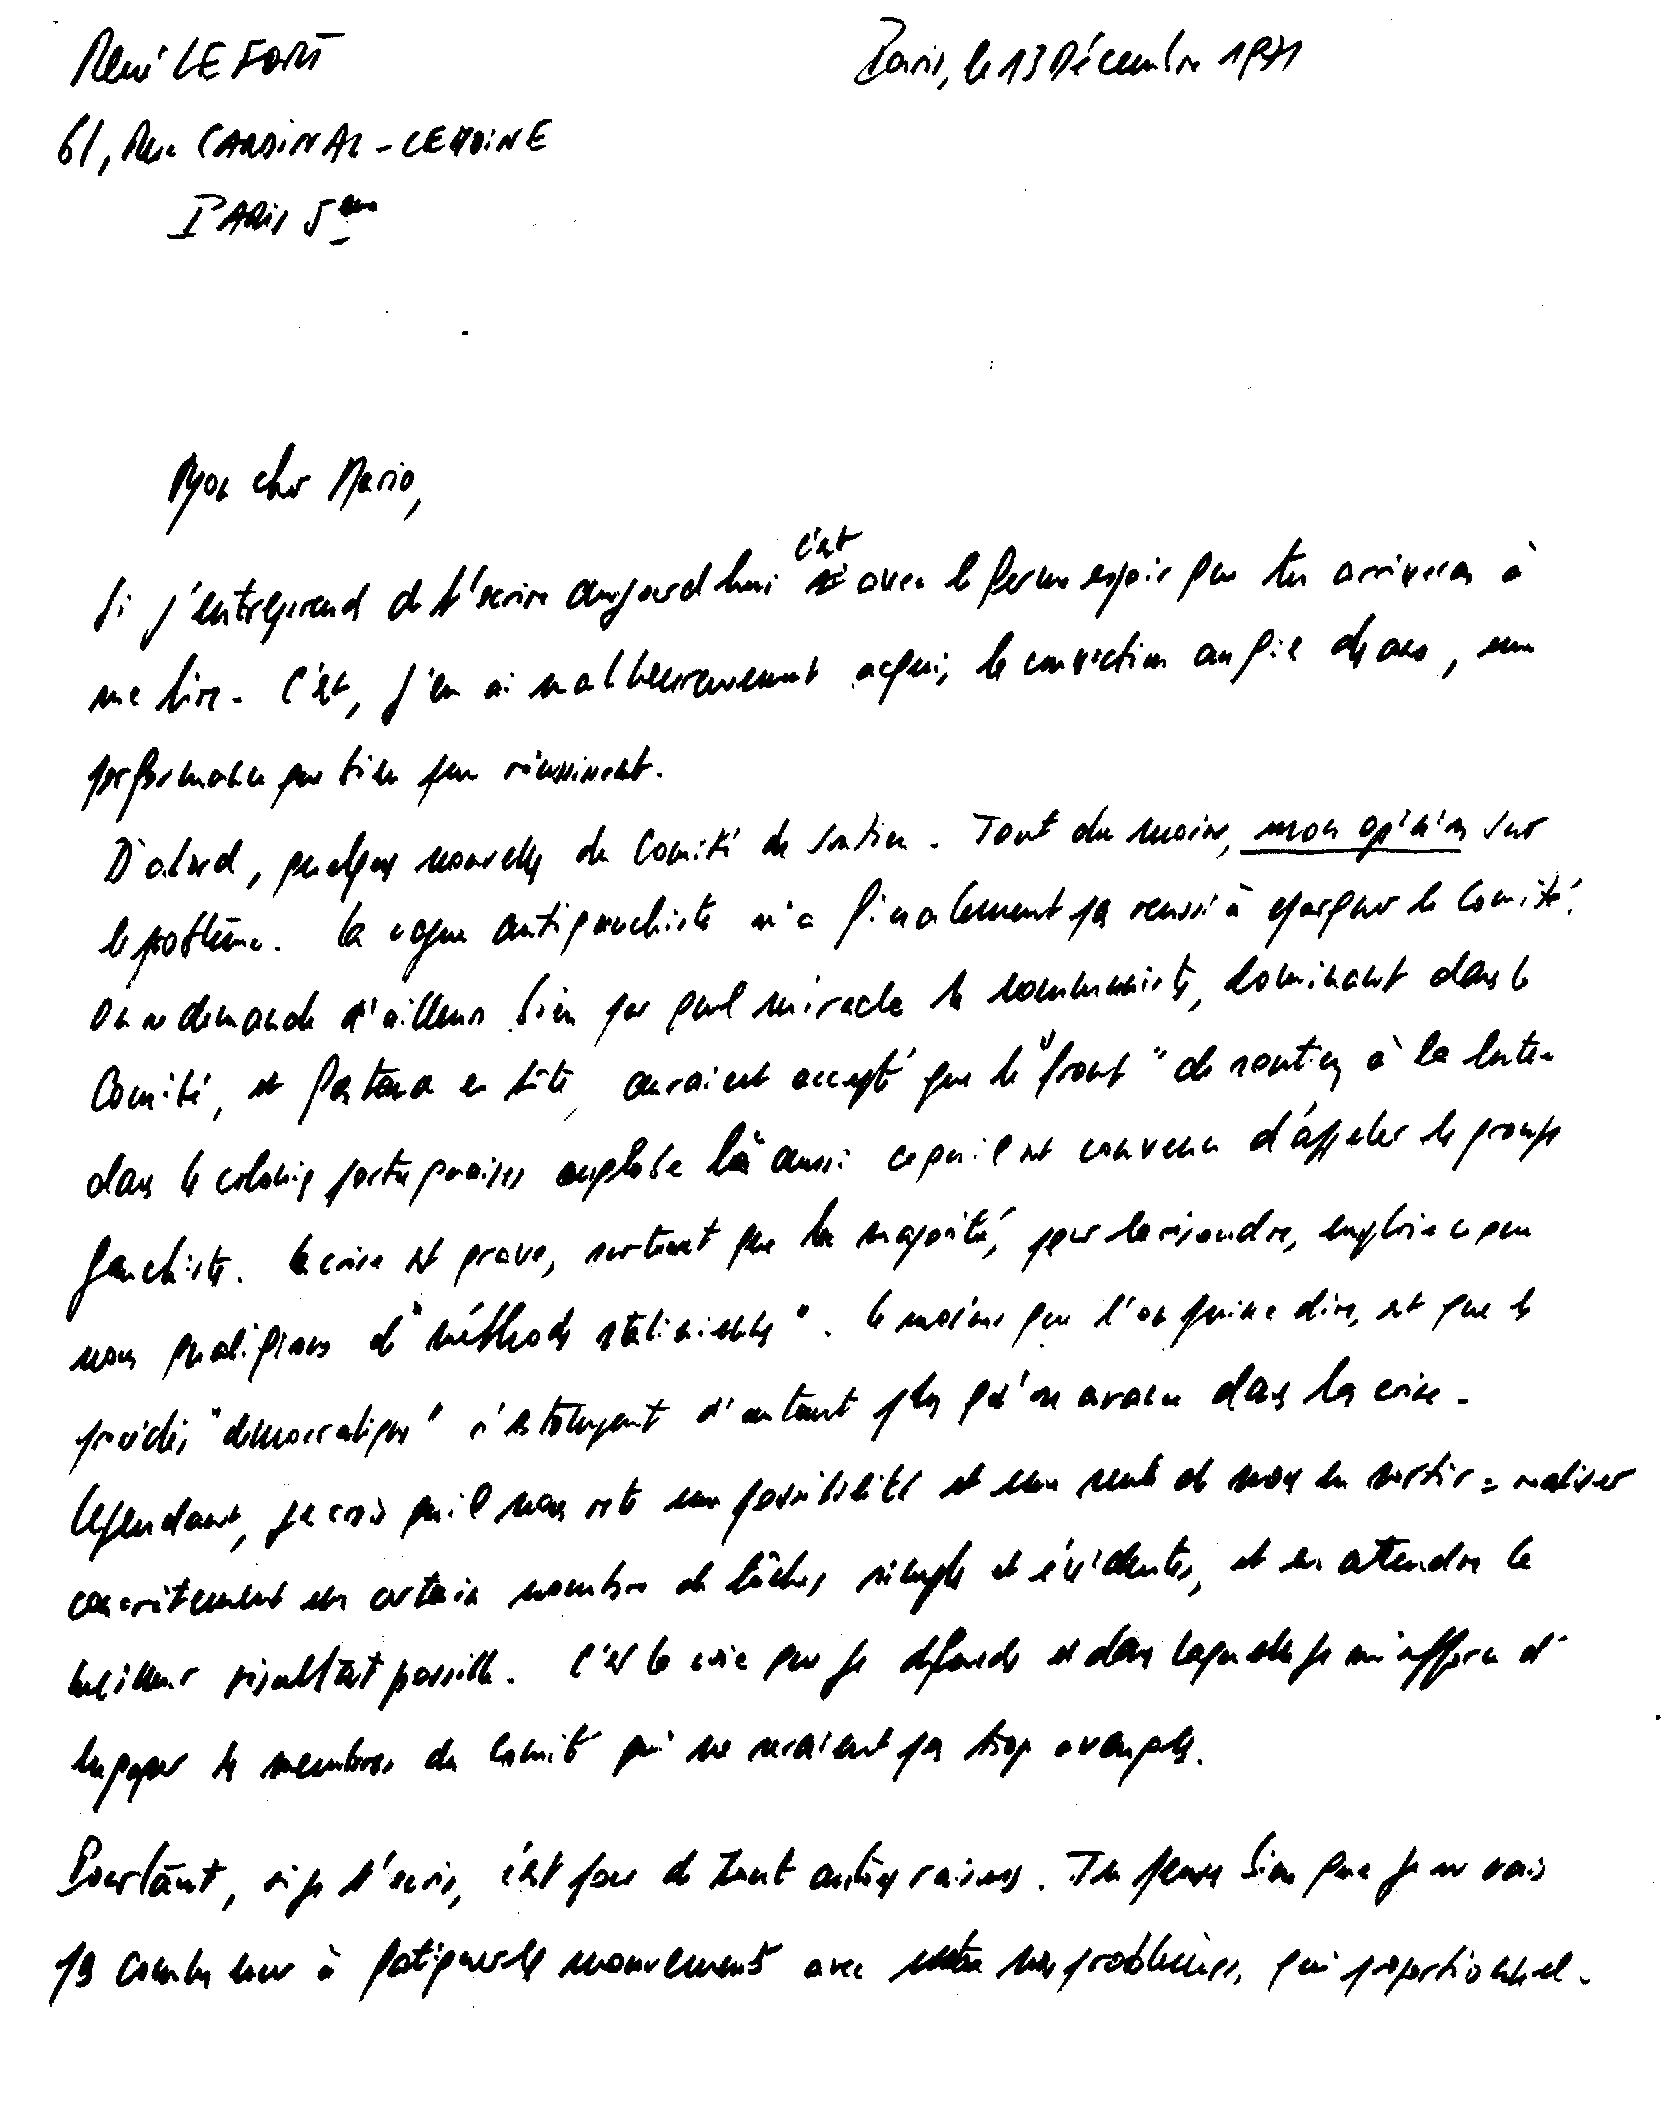 René LEFORT
Paris, le 13 Décembre 1971
61, Rue CARDINAL-LEMOINE
PARIS 5ème
Mon cher Mario,
Si j'entreprend de t'écrire aujourd'hui c'est avec le ferme espoir que tu arriveras à
me lire. C'est, j'en ai malheureusement acquis la conviction au fil des ans, une
performance que bien peu réussissent.
D'abord, quelques nouvelles du Comité de soutien. Tout du moins, mon opinion sur
le problème. La vague antigauchiste n'a finalement pas réussi à épargner le Comité.
On se demande d'ailleurs bien par quel miracle les communistes, dominant dans le
Comité, et en tête, auraient accepté que le "front" de soutien à la lutte
dans les colonies portugaises englobe là aussi ce qu'il est convenu d'appeler les groupes
gauchistes. La crise est grave, surtout que la majorité, pour la résoudre, emploie ce que
nous qualifions de "méthodes staliniennes". Le moins que l'on puisse dire, est que les
procédés "démocratiques" s'estompent d'autant plus qu'on avance dans la crise.
Cependant, je crois qu'il nous reste une possibilité et une seule de nous en sortir : réaliser
concrètement un certain nombre de tâches, simples et évidentes, et en attendre le
meilleur résultat possible. C'est la voie que je défends et dans laquelle je m'efforce d'
engager les membres du Comité qui ne seraient pas trop aveuglés.
Pourtant, si je t'écris, c'est pour de tout autres raisons. Tu penses bien que je ne vais
pas continuer à fatiguer les mouvements avec nos problèmes, qui proportionnel-